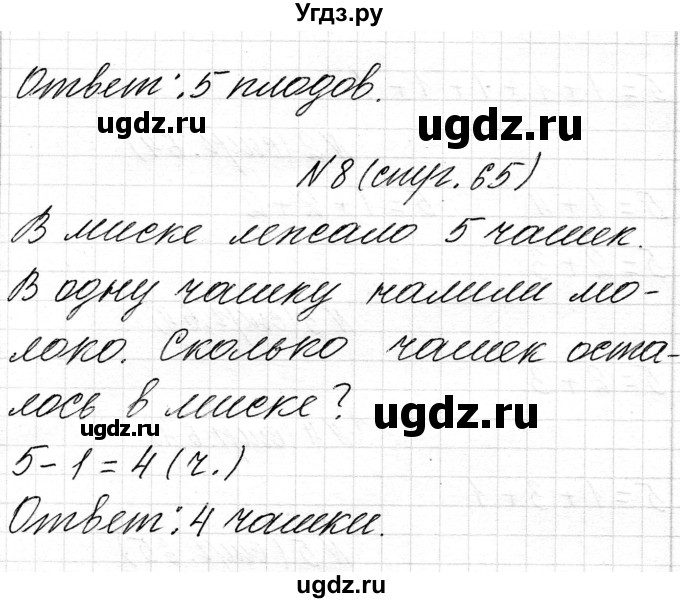 Угдз.ру
Ответ: 5 плодов.
ugdz.ru
ugdz.ru
N8 (стр. 65)
В миске лежало 5 чашек.
В одну чашку налили мо-
локо. Сколько чашек оста-
лось в миске?
ugdz.ru
ugdz.ru
5 - 1 = 4 (ч.)
Ответ: 4 чашки.
ugdz.ru